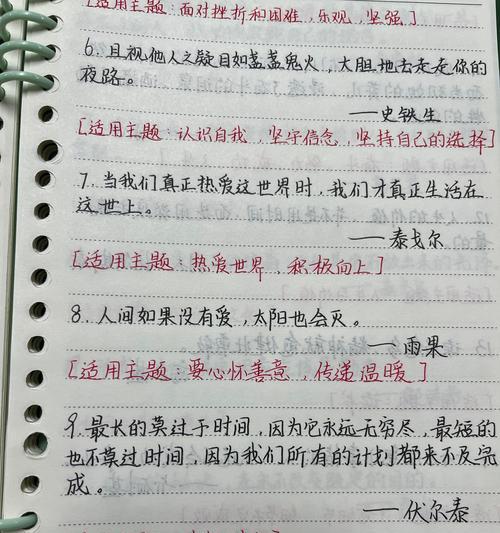 [适用主题：面对挫折和困难，乐观，坚强]
6. 且视他人之疑目如盏盏鬼火，大胆地去走走你的
夜路。
——史铁生
[适用主题：认识自我，坚守信念，坚持自己的选择]
7. 当我们真正热爱这世界时，我们才真正生活在
这世上。
——泰戈尔
[适用主题：热爱世界，积极向上]
8. 人间如果没有爱，太阳也会灭。
——雨果
[适用主题：要心怀善意，传递温暖]
9. 最长的莫过于时间，因为它永远无穷尽，最短的
也不莫过时间，因为我们所有的计划都来不及完
成。
——伏尔泰